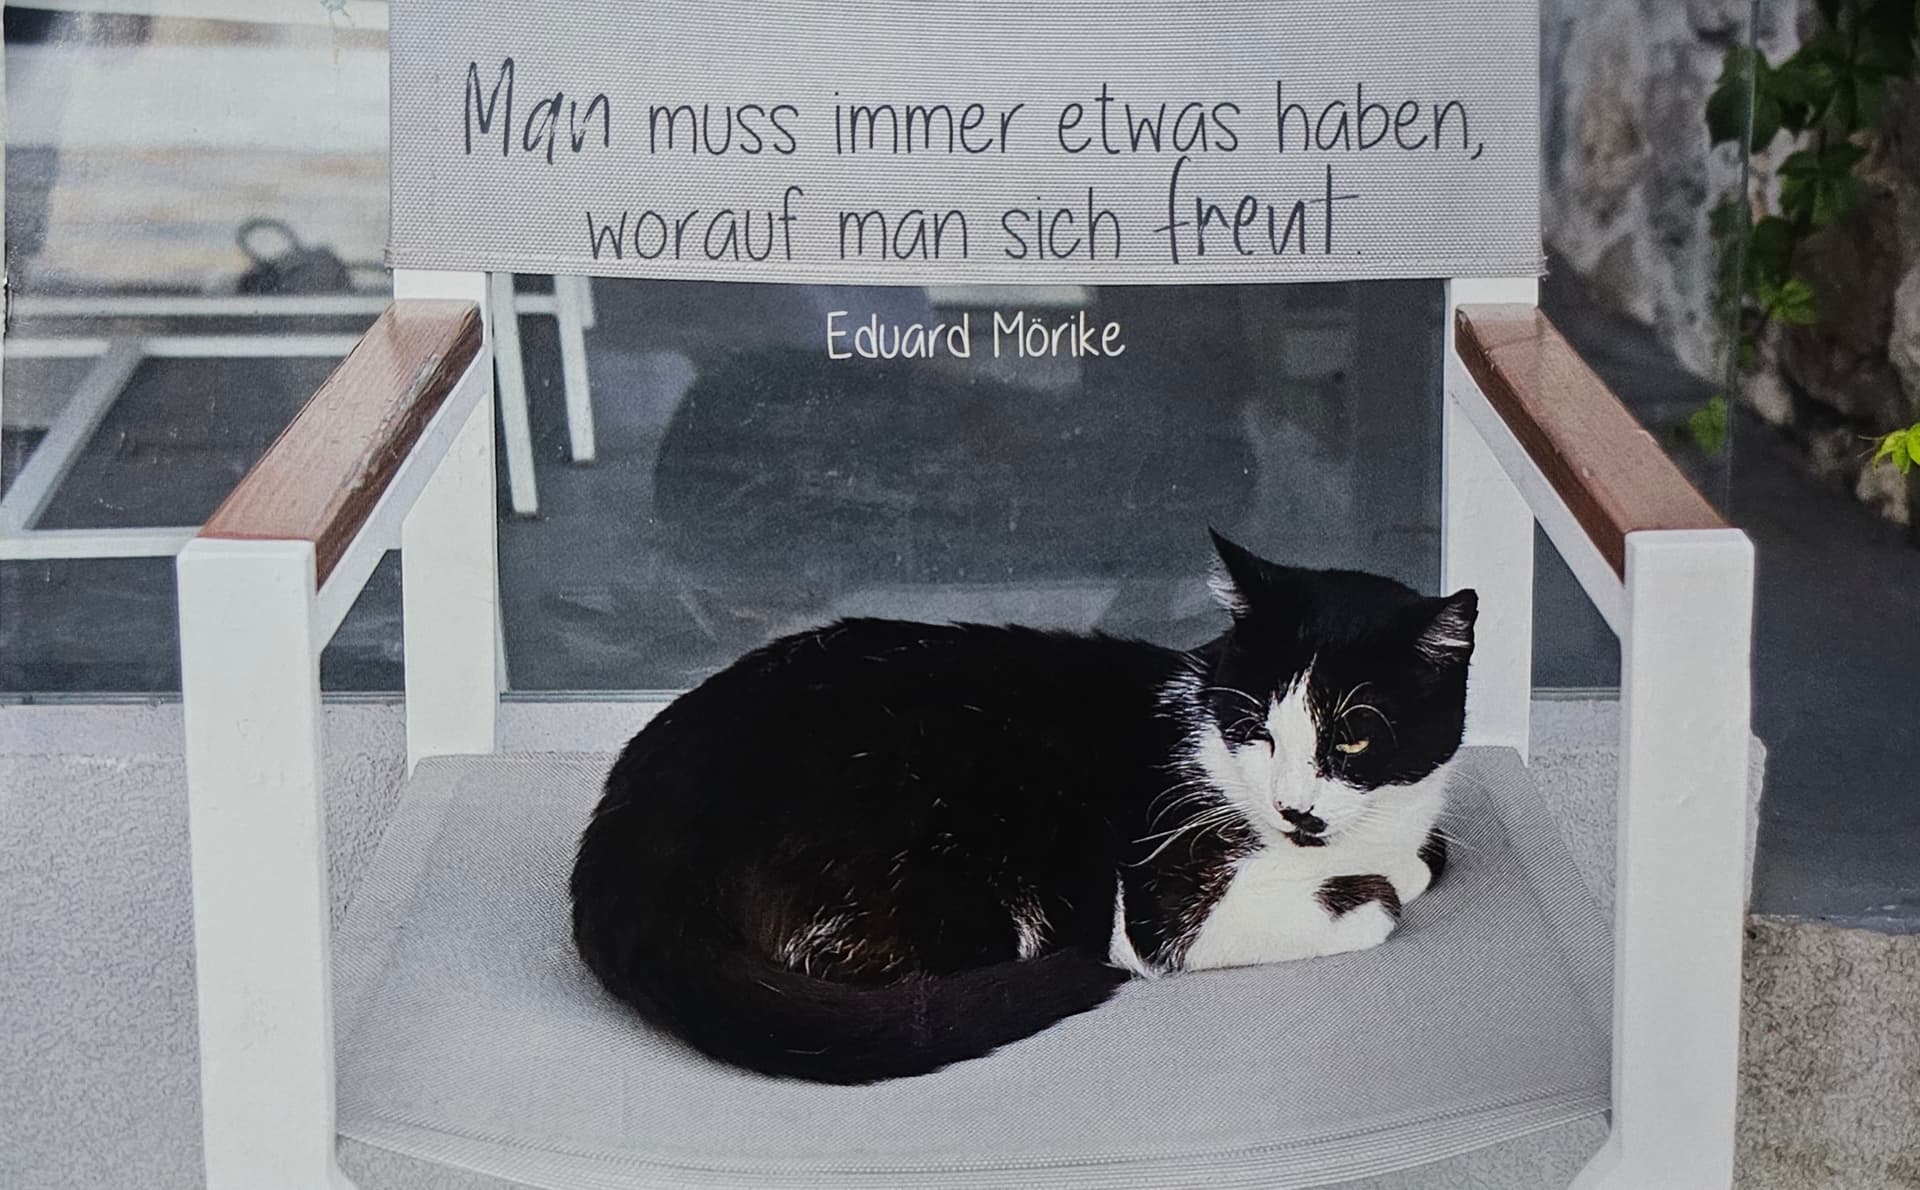 Man muss immer etwas haben,
worauf man sich freut.
Eduard Mörike